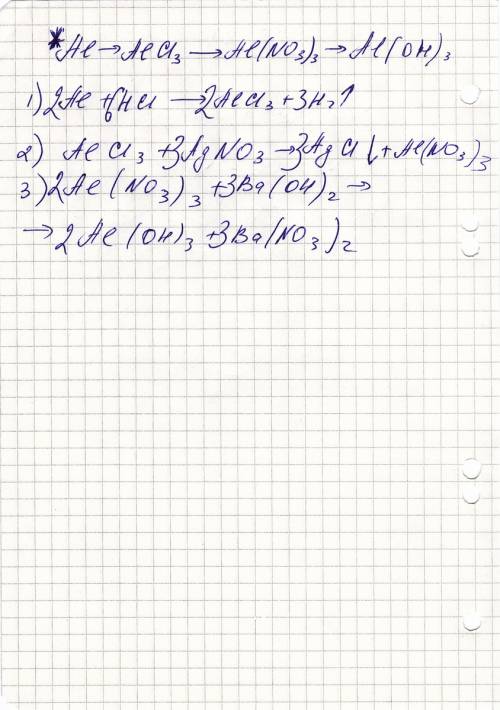 * Al → AlCl₃ → Al(NO₃)₃ → Al(OH)₃
1) 2Al + 6HCl → 2AlCl₃ + 3H₂↑
2) AlCl₃ + 3AgNO₃ → 3AgCl↓ + Al(NO₃)₃
3) 2Al(NO₃)₃ + 3Ba(OH)₂ →
→ 2Al(OH)₃ + 3Ba(NO₃)₂